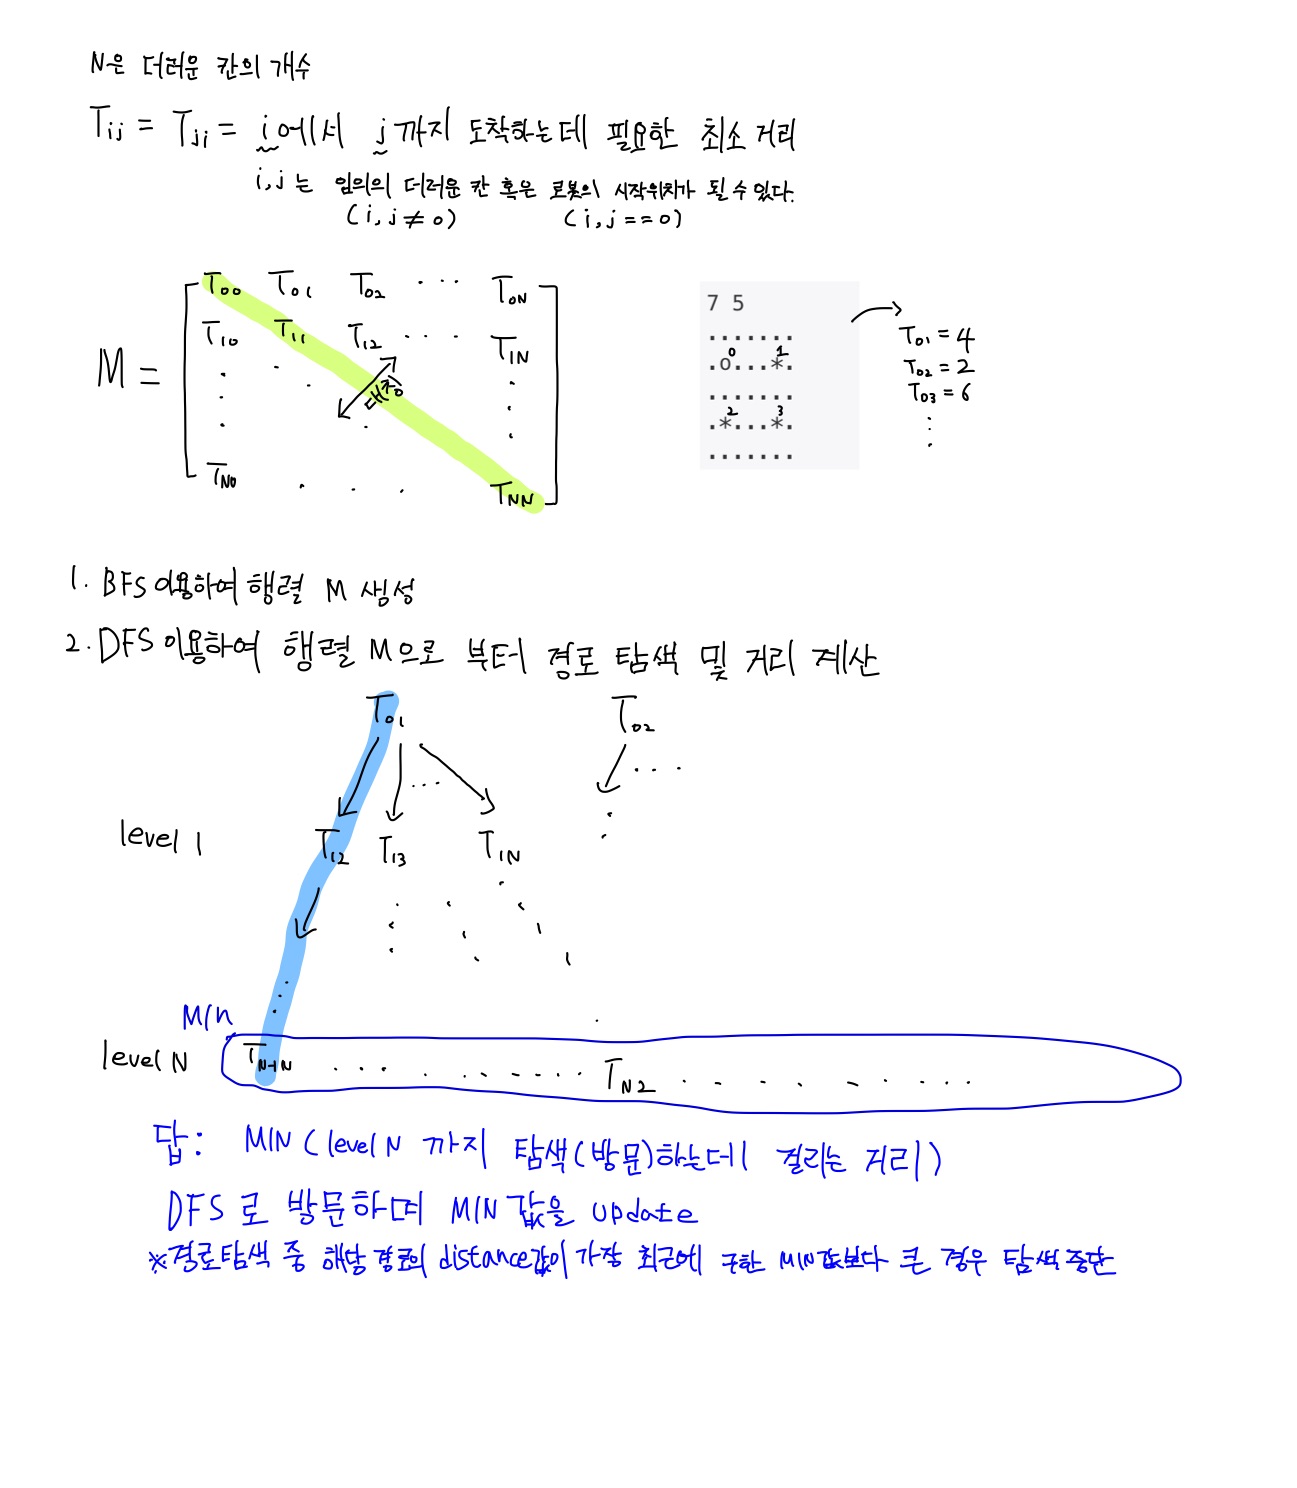 N은 더러운 칸의 개수
Tij = Tji = i에서 j까지 도착하는데 필요한 최소 거리
i,j는 임의의 더러운 칸 혹은 로봇의 시작위치가 될 수 있다.
(i,j≠0) (i,j==0)
M = T00 T01 T02 ... T0N
T10 T11 T12 ... T1N
대칭
TN0 . . . TNN
7 5
.......
.o...*.
0 1
.......
.*...*.
2 3
.......
T01 = 4
T02 = 2
T03 = 6
1. BFS 이용하여 행렬 M 생성
2. DFS 이용하여 행렬 M으로 부터 경로 탐색 및 거리 계산
T01 T02
level 1 T12 T13 ... T1N
Min
level N TN-1N ... TN2 ...
답: MIN (level N 까지 탐색(방문)하는데 걸리는 거리)
DFS로 방문하며 MIN 값을 update
※경로탐색 중 해당 경로의 distance값이 가장 최근에 구한 MIN값보다 큰 경우 탐색 중단